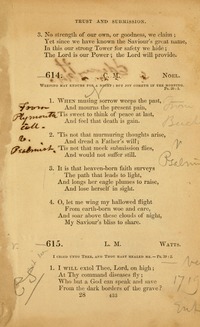 TRUST AND SUBMISSION.
3. No strength of our own, or goodness, we claim;
Yet since we have known the Saviour's great name,
In this our strong Tower for safety we hide;
The Lord is our Power; the Lord will provide.
614. C. M. NOEL.
WEEPING MAY ENDURE FOR A NIGHT; BUT JOY COMETH IN THE MORNING.
1. WHEN musing sorrow weeps the past,
And mourns the present pain,
'Tis sweet to think of peace at last,
And feel that death is gain.
2. 'Tis not that murmuring thoughts arise,
And dread a Father's will;
'Tis not that meek submission flies,
And would not suffer still.
3. It is that heaven-born faith surveys
The path that leads to light,
And longs her eagle plumes to raise,
And lose herself in sight.
4. O, let me wing my hallowed flight
From earth-born woe and care,
And soar above these clouds of night,
My Saviour's bliss to share.
From
Plymouth
Coll.
&
Psalmist
615. L. M. WATTS.
I CRIED UNTO THEE, AND THOU HAST HEALED ME.
1. I WILL extol Thee, Lord, on high;
At Thy command diseases fly;
Who but a God can speak and save
From the dark borders of the grave?
28 433